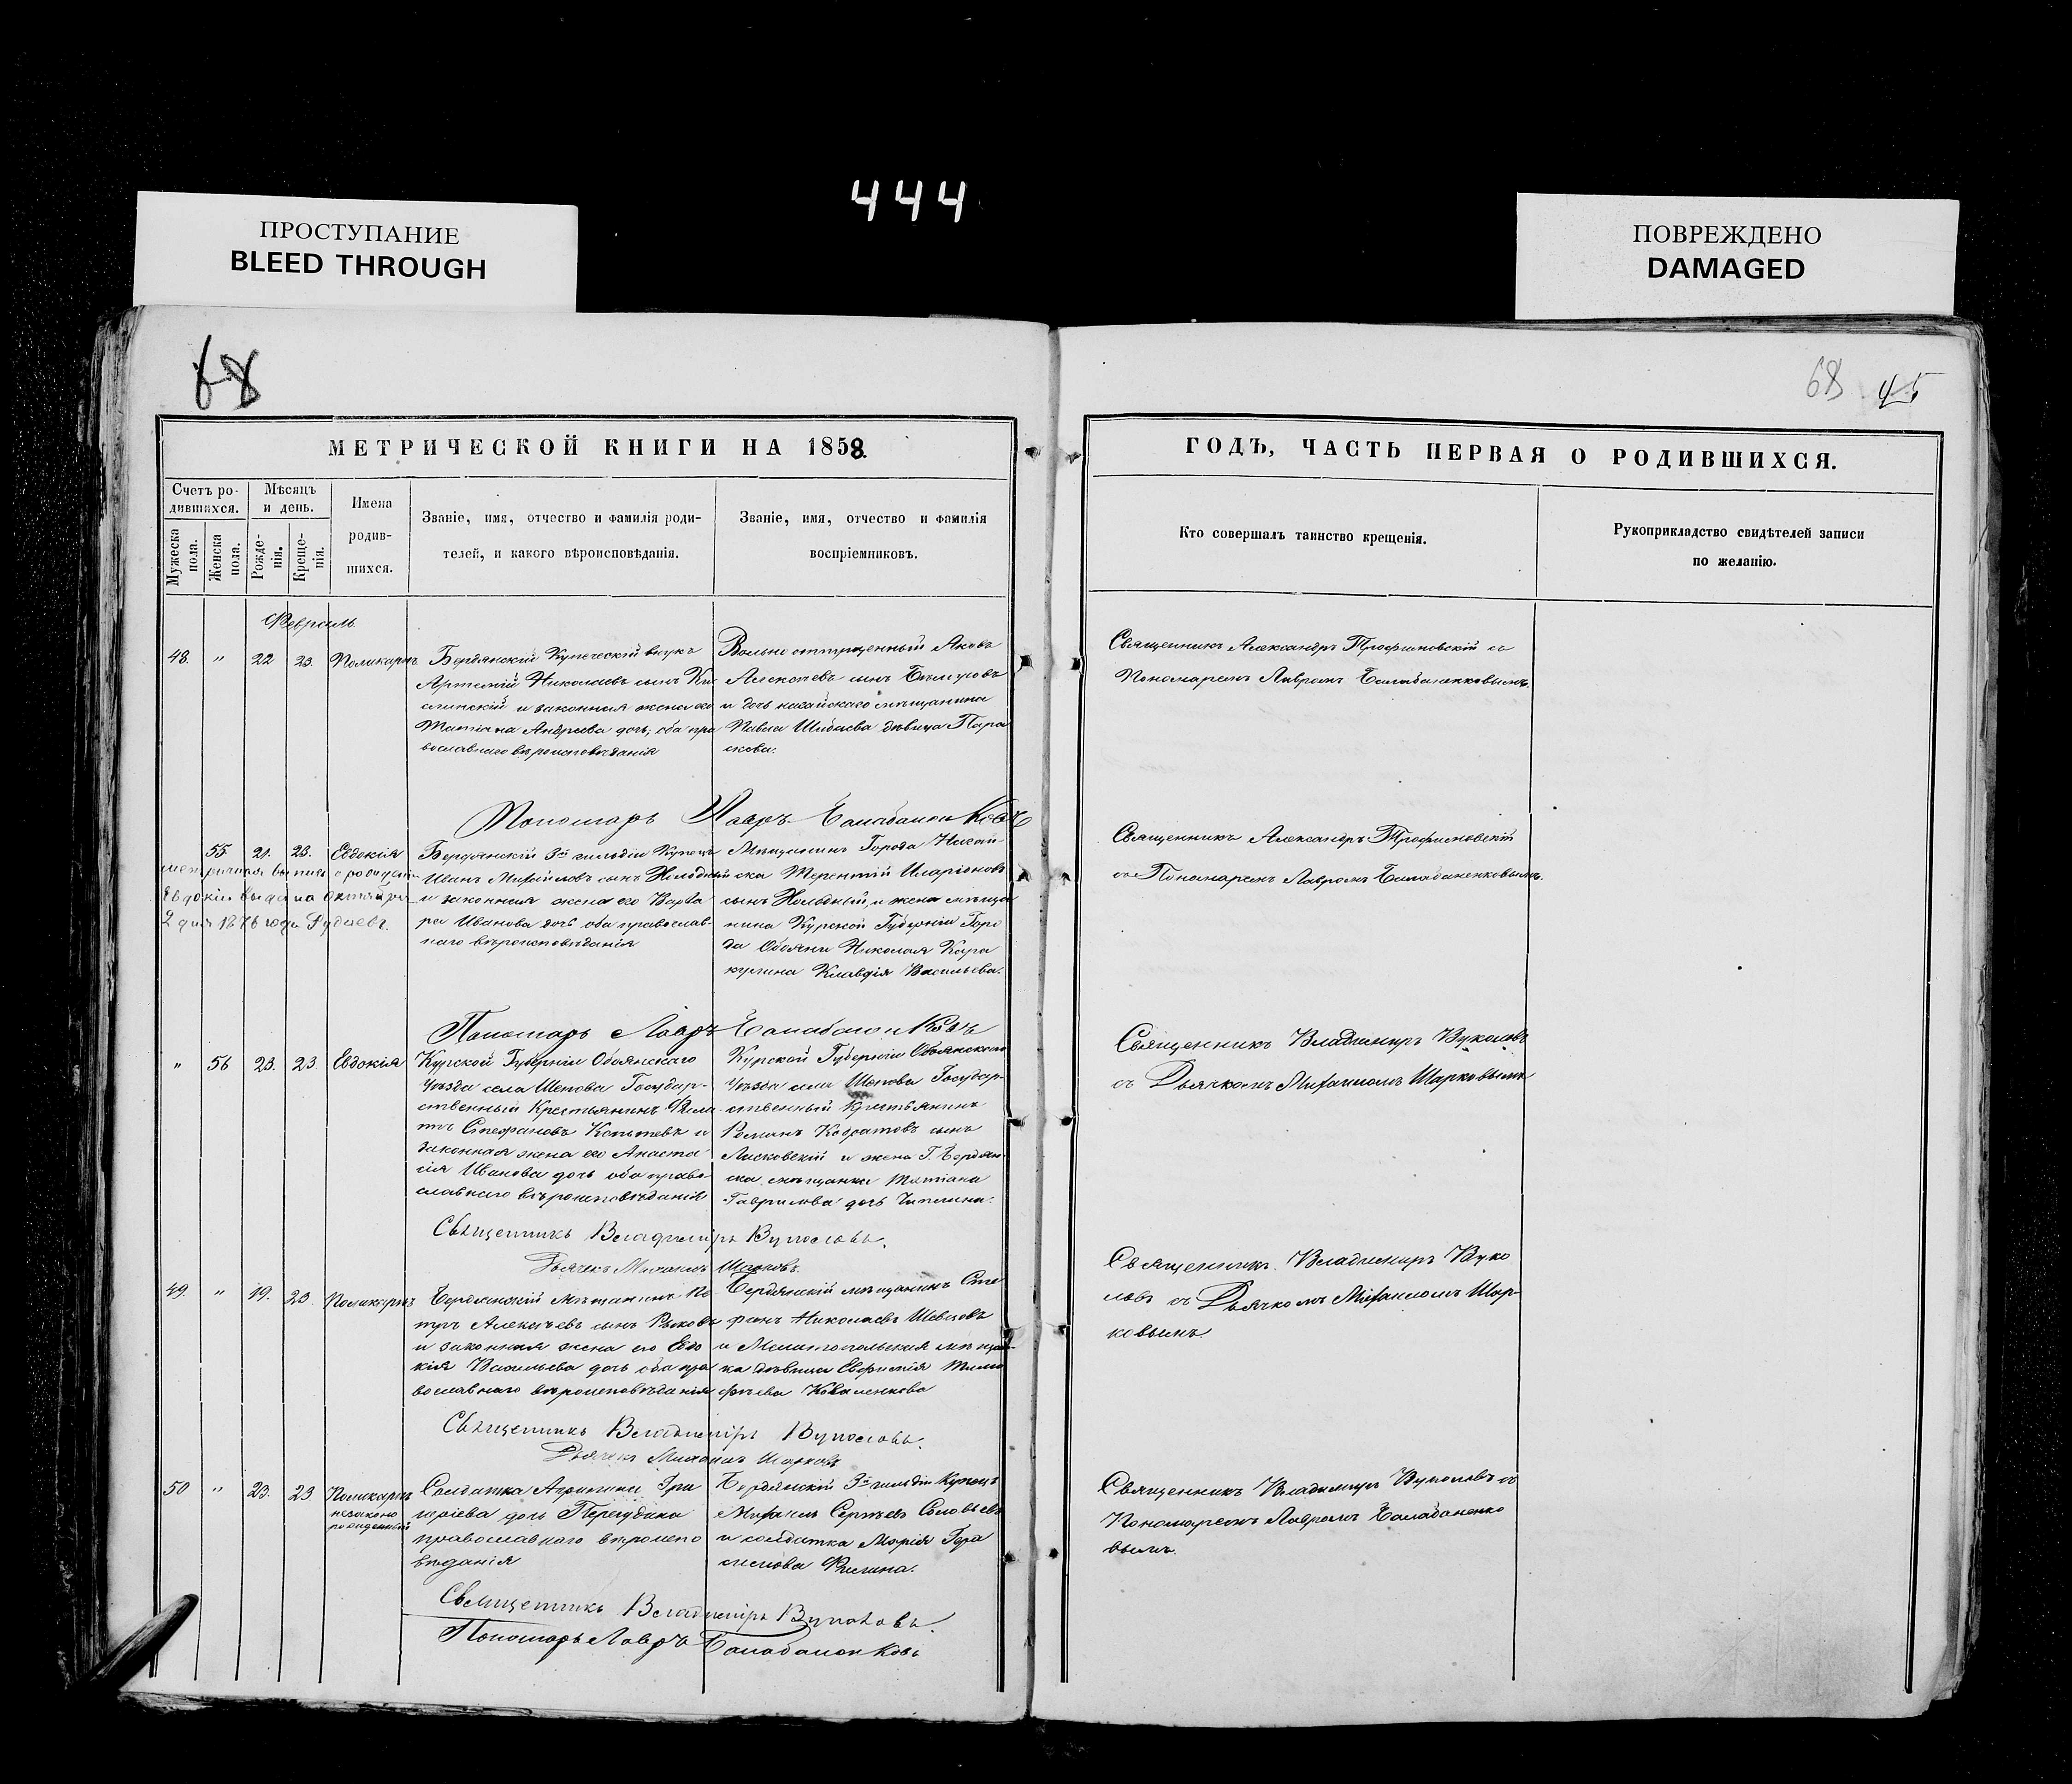 444
ПРОСТУПАНИЕ
BLEED THROUGH
ПОВРЕЖДЕНО
DAMAGED
68
68 45
МЕТРИЧЕСКОЙ КНИГИ НА 1858.
ГОДЪ, ЧАСТЬ ПЕРВАЯ О РОДИВШИХСЯ.
Счетъ ро-
дившихся.
Мужеска пола.
Женска пола.
Мѣсяцъ
и день.
Рожде-
нія.
Креще-
нія.
Имена
родив-
шихся.
Званіе, имя, отчество и фамилія роди-
телей, и какого вѣроисповѣданія.
Званіе, имя, отчество и фамилія
воспріемниковъ.
Кто совершалъ таинство крещенія.
Рукоприкладство свидѣтелей записи
по желанію.
Февраль
48. " 22 23. Поликарпъ
Бердянскій Купеческій внукъ
Артемій Николаевъ сынъ
и законная жена его
Татіана Андреева дочь, оба пра
вославнаго вѣроисповѣданія
Вольно отпущенный Яковъ
Алексѣевъ сынъ
и дочь ногайскаго мѣщанина
Павла Шибаева дѣвица Пара
скева.
Священникъ Александръ Трофимовскій съ
Пономаремъ Лавромъ Балабаненковымъ.
Пономарь Лавръ Балабаненковъ
55. 21. 23. Евдокія
Евдокіи выдана октября
2 дня 1876 года
Бердянскій 3й гильдіи Купецъ
Иванъ Михайловъ сынъ Холодный
и законная жена его Варва
ра Иванова дочь оба православ-
наго вѣроисповѣданія
Мѣщанинъ Города Ногай-
ска Терентій Иларіоновъ
сынъ Холодный, и жена мѣща
нина Курской Губерніи Горо
да Обояни Николая Кара
кулина Клавдія Васильева.
Священникъ Александръ Трофимовскій
съ Пономаремъ Лавромъ Балабаненковымъ.
Пономарь Лавръ Балабаненковъ
" 56 23. 23 Евдокія
Курской Губерніи Обоянскаго
Уѣзда села Шепова Государ-
ственный Крестьянинъ
Стефановъ и
законная жена его Анаста
сія Иванова дочь оба право-
славнаго вѣроисповѣданія
Курской Губерніи Обоянскаго
Уѣзда села Шепова Государ-
ственный Крестьянинъ
Романъ сынъ
и жена Г. Бердян-
ска мѣщанка Татіана
Гаврилова дочь
Священникъ Владимиръ Вуколовъ
съ Дьячкомъ Михаиломъ Шарковымъ
Священникъ Владимиръ Вуколовъ.
Дьячекъ Михаилъ Шарковъ.
49. " 19. 23. Поликарпъ
Бердянскій Мѣщанинъ Пе
тръ Алексѣевъ сынъ Рыковъ
и законная жена его Евдо
кія Васильева дочь оба пра
вославнаго вѣроисповѣданія
Бердянскій мѣщанинъ Сте
фанъ Николаевъ Шевцовъ
и Мелитопольская мѣщан-
ка дѣвица Евфимія Тимо
фѣева Коваленкова
Священникъ Владимиръ Вуко
ловъ съ Дьячкомъ Михаиломъ Шар-
ковымъ
Священникъ Владимиръ Вуколовъ.
Дьячекъ Михаилъ Шарковъ
50 " 23. 23 Поликарпъ
незаконо
рожденный
Солдатка Агрипина Гри
горіева дочь Перегудина
православнаго вѣроиспо
вѣданія
Бердянскій 3й гильдіи Купецъ
Михаилъ Сергѣевъ Соловьевъ
и солдатка Марія Гера
симова
Священникъ Владимиръ Вуколовъ съ
Пономаремъ Лавромъ Балабаненко
вымъ.
Священникъ Владимиръ Вуколовъ.
Пономарь Лавръ Балабаненковъ